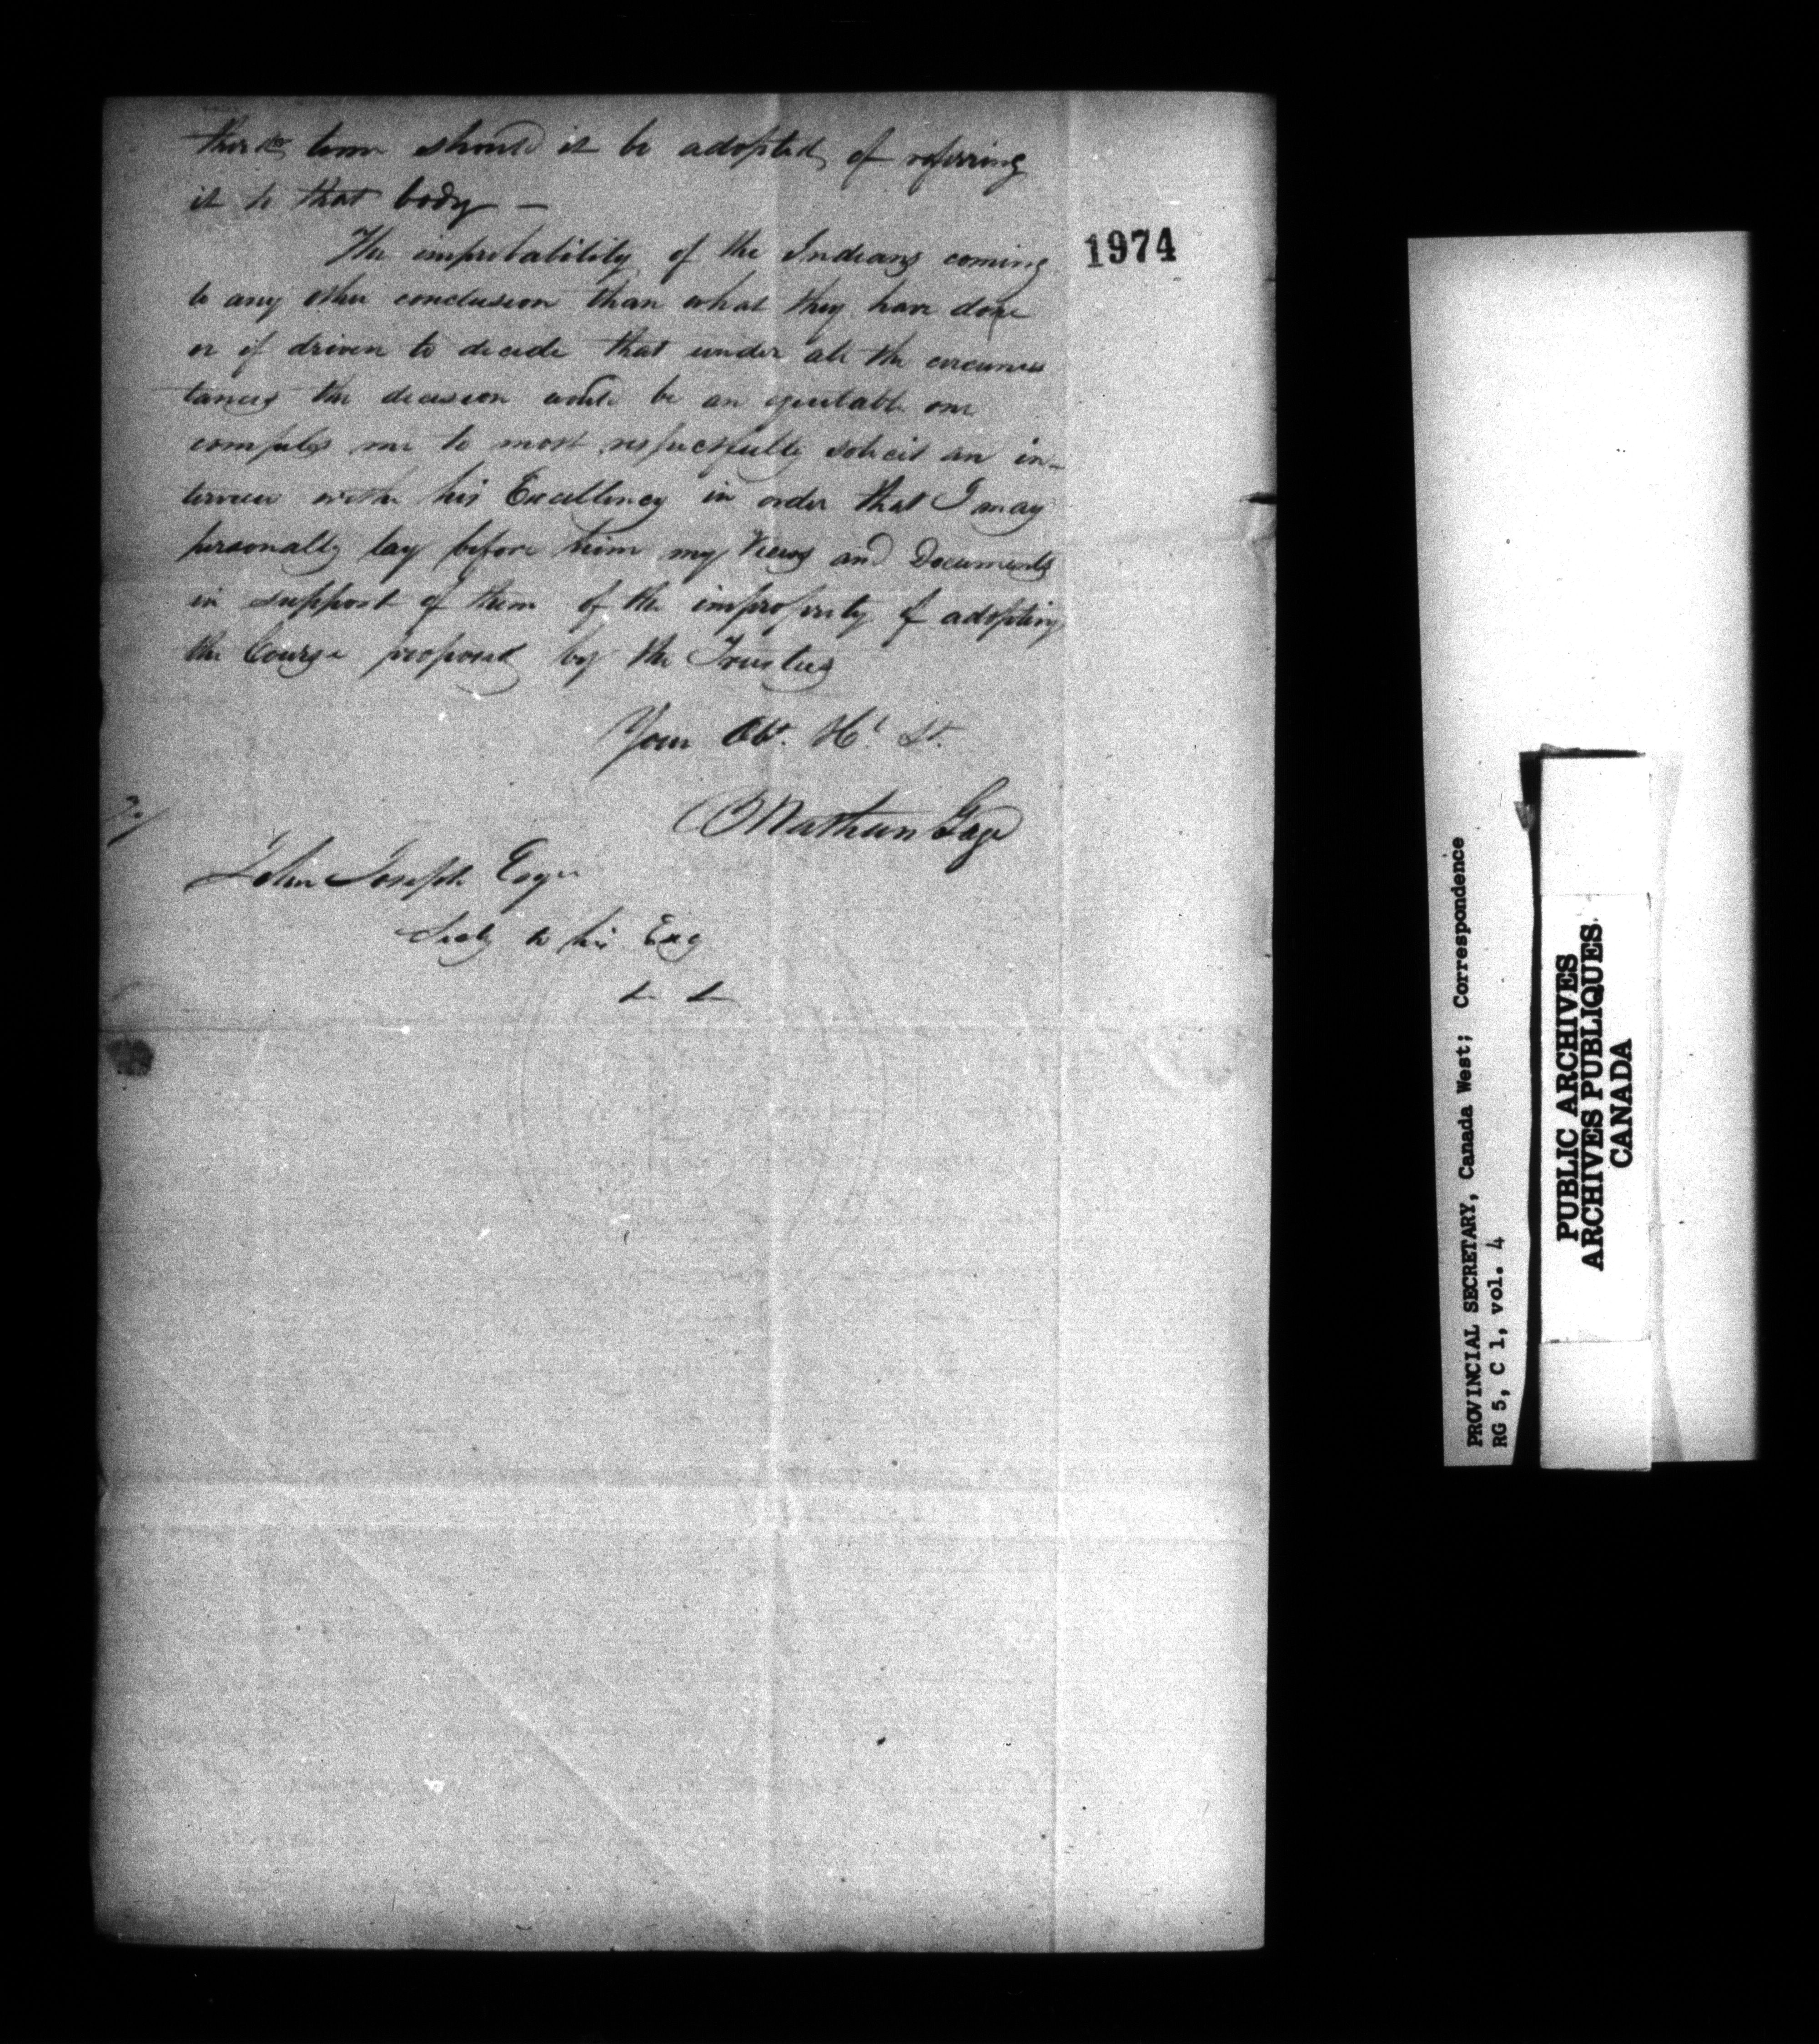 should it be adopted, of referring
it to that body —
The improbability of the Indians coming
to any other conclusion than what they have done
or if driven to decide that under all the circums
tances the decision would be an equitable one
compels me to most respectfully solicit an in-
terview with his Excellency in order that I may
personally lay before him my Views and Documents
in support of them of the impropriety of adopting
the Course proposed by the Trustees
Your Obt. Hl. St.
Nathan Gage
John Joseph Esqr
Secty to his Excy
1974
PROVINCIAL SECRETARY, Canada West; Correspondence
RG 5, C 1, vol. 4
PUBLIC ARCHIVES
ARCHIVES PUBLIQUES
CANADA